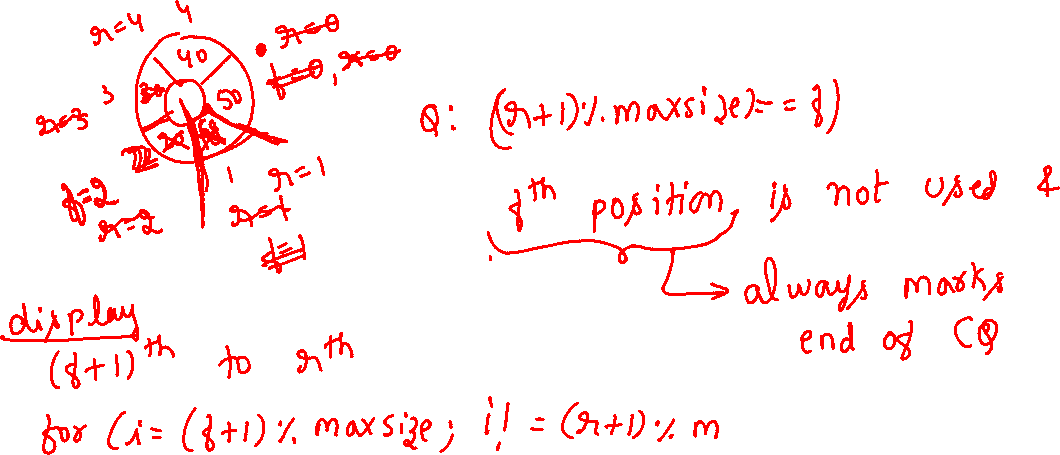 r=4 4
40
r=0
f=0, r=0
3
30
50
r=3
20
f=2
r=2
1
r=1
r=1
f=1
Q: ((r+1)% maxsize)== f)
fth position, is not used &
always marks
end of CQ
display
(f+1)th to rth
for (i= (f+1)% maxsize; i! = (r+1)% m